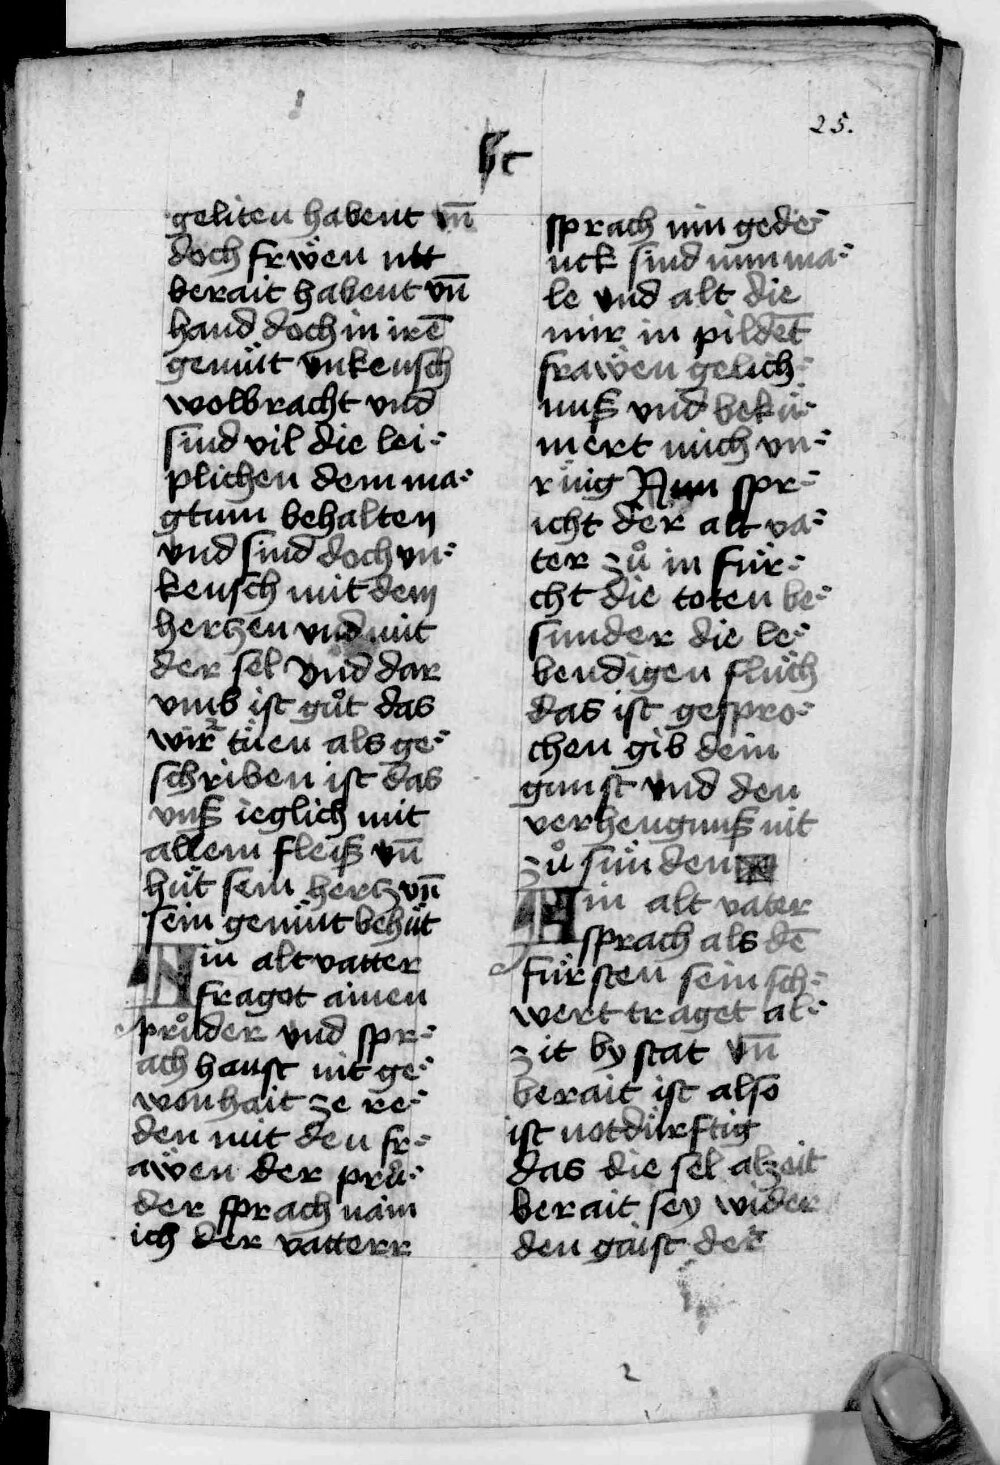 25.
geliten habent vn̄
doch frwen nit
berait habent vn̄
hand doch in irē
gemüt vnkeusch
wolbracht vnd
sind vil die lei⸗
plichen dem ma⸗
gtum behalten
vnd sind doch vn⸗
keusch mit dem
hertzen vnd mit
der sel vnd dar
vmb ist gůt das
wir tüen als ge⸗
schriben ist das
vnß ieglich mit
allem fleiß vn̄
hüt sein hertz vn̄
sein gemüt behüt
Ain alt vatter
fragot ainen
průder vnd spr⸗
ach haust nit ge⸗
wonhait ze re⸗
den mit den fr⸗
aẅen der prů⸗
der sprach nain
ich der vatterr
sprach min gede⸗
nck sind nun ma⸗
le vnd alt die
mir in pildet
fraẅen gelich⸗
nuß vnd bekü⸗
mert mich vn⸗
rüig Nun spr⸗
icht der alt va⸗
ter zů in für⸗
cht die toten be⸗
sunder die le⸗
bendigen flüch
das ist gespro⸗
chen gib dein
gunst vnd den
verhengnuß nit
zů sünden
Ain alt vater
sprach als dē
fürsten sein sch⸗
wert traget al⸗
zit by stat vn̄
berait ist also
ist notdürftig
das die sel alzeit
berait sey wider
den gaist der